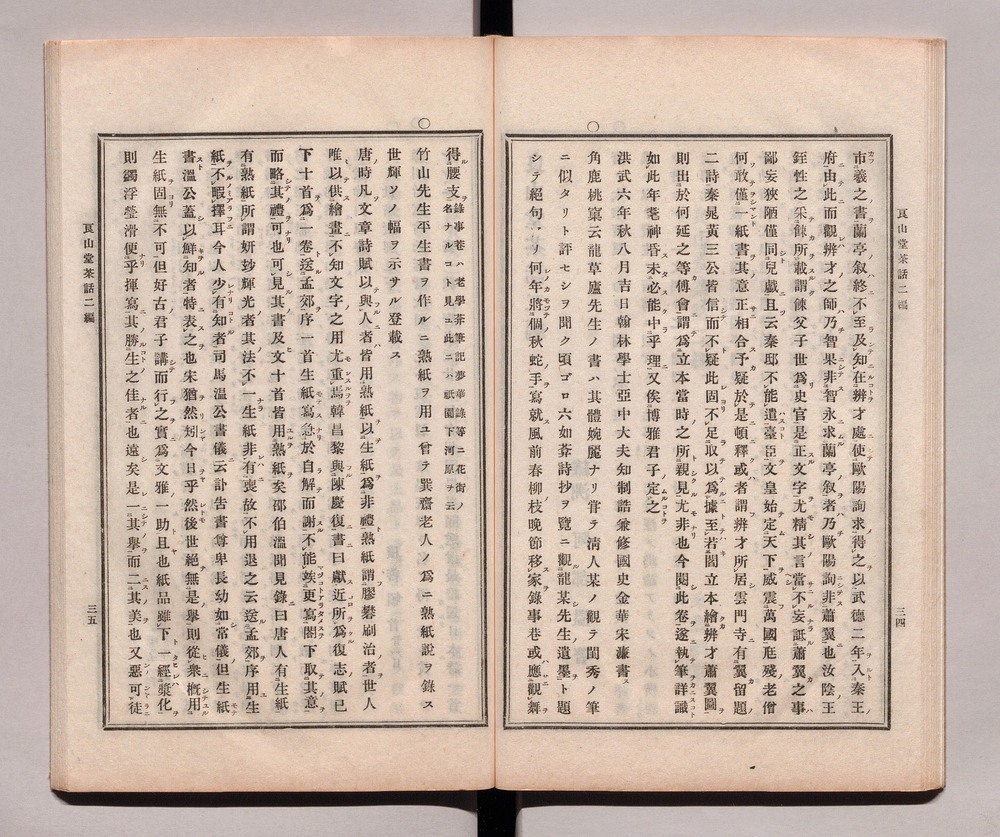 瓦山堂茶話二編
三四
市羲之書蘭亭叙終不至及知在辨才處使歐陽詢求得之以武德二年入秦王
府由此而觀辨才之師乃智果非智永求蘭亭叙者乃歐陽詢非蕭翼也汝陰王
銍性之采餗所載謂餗父子世爲史官是正文字尤精其言當不妄誣蕭翼之事
鄙妄狹陋僅同兒戲且云秦邸不能遣臺臣文皇始定天下威震萬國尫殘老僧
何敢僅一紙書其意正相合予疑於是頓釋或者謂辨才所居雲門寺有蕭翼留題
二詩秦晁黃三公皆信而不疑此固不足取以爲據至若閻立本繪辨才蕭翼圖
則出於何延之等傅會謂爲立本當時之所親見尤非也今閱此卷遂執筆詳識
如此年耄神昏未必能中乎理又俟博雅君子定之
洪武六年秋八月吉日翰林學士亞中大夫知制誥兼修國史金華宋濂書
○
角鹿桃窠云龍草廬先生ノ書ハ其體婉麗ナリ嘗テ淸人某ノ觀テ閨秀ノ筆
ニ似タリト評セシヲ聞ク頃ゴロ六如菴詩抄ヲ覽ニ觀龍某先生遺墨ト題
シテ絕句アリ何年將個秋蛇手寫就風前春柳枝晚節移家錄事巷或應觀舞
得腰支錄事巷ハ老學菴筆記夢華錄等ニ花街ノ名ナルコト見ユ此ニハ祇園下河原ヲ云
○
竹山先生平生書ヲ作ルニ熟紙ヲ用ユ曾テ巽齋老人ノ爲ニ熟紙說ヲ錄ス
世輝ソノ幅ヲ示サル登載ス
唐時凡文章詩賦以與人者皆用熟紙以生紙爲非禮熟紙謂膠礬刷治者世人
唯以供繪畫不知文字之用尤重焉韓昌黎與陳慶復書曰獻近所爲復志賦已
下十首爲一卷送孟郊序一首生紙寫急於自解而謝不能竢更寫閤下取其意
而略其禮可也可見其書及文十首皆用熟紙矣邵伯溫聞見錄曰唐人有生紙
有熟紙所謂姸玅輝光者其法不一生紙非有喪故不用退之云送孟郊序用生
紙不暇擇耳今人少有知者司馬溫公書儀云訃告書尊卑長幼如常儀但生紙
書溫公蓋以鮮知者特表之也宋猶然矧今日乎然後世絕無是擧則從衆槪用
生紙固無不可但好古君子講而行之實爲文雅一助且也紙品雖下一經漿化
則鐲浮瑩滑便乎揮寫其勝生之佳者也遠矣是一其擧而二其美也又惡可徒
瓦山堂茶話二編
三五